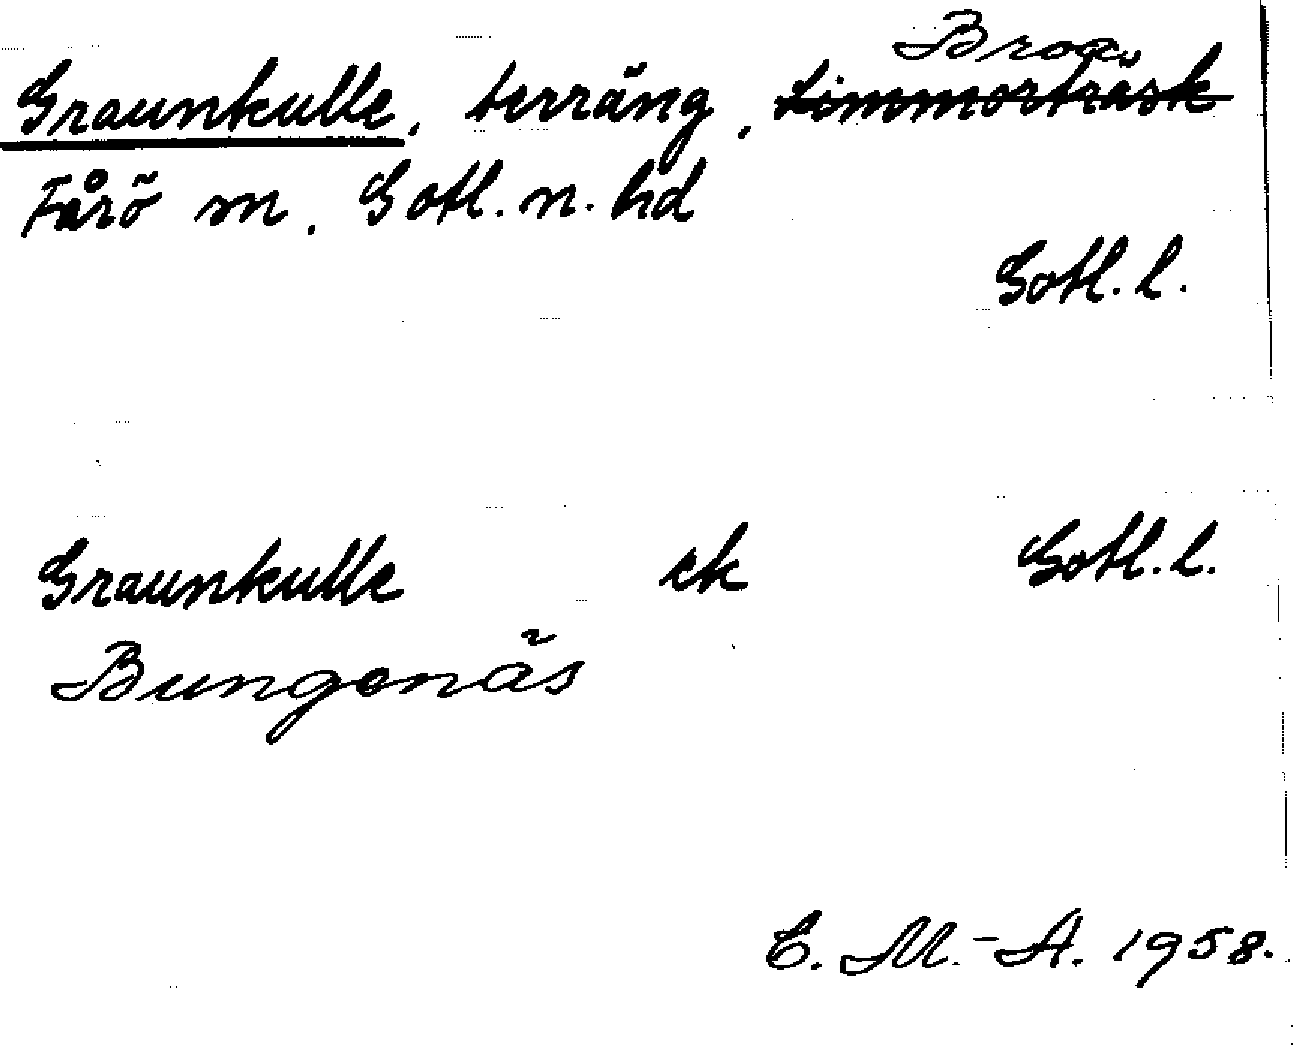 Broa,
Graunkulle, terräng, Limmorträsk
Fårö sn. Gotl. n. hd
Gotl. l.
Graunkulle ek Gotl. l.
Bungenäs
E. M.-A. 1958.